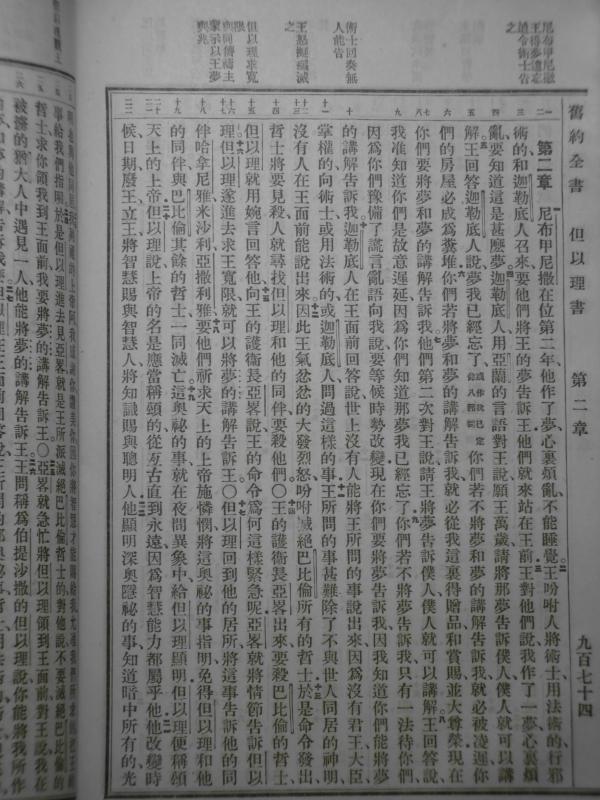 舊約全書 但以理書 第二章 九百七十四
尼布甲尼撒
王得夢遺忘
遂令術士告
之
術士回奏無
人能告
王怒擬滅
之
但以理求寬
限
與同儕禱主
蒙示以王夢
與兆
第二章 尼布甲尼撒在位第二年他作了夢心裏煩亂不能睡覺王吩咐人將術士用法術的行邪
術的和迦勒底人召來要他們將王的夢告訴王他們就來站在王前王對他們說我作了一夢心裏煩
亂要知道這是甚麼夢迦勒底人用亞蘭的言語對王說願王萬歲請將那夢告訴僕人僕人就可以講
解王回答迦勒底人說夢我已經忘了你們若不將夢和夢的講解告訴我就必被凌遲你
們的房屋必成爲糞堆你們若將夢和夢的講解告訴我就必從我這裏得贈品和賞賜並大尊榮現在
你們要將夢和夢的講解告訴我他們第二次對王說請王將夢告訴僕人僕人就可以講解王回答說
我准知道你們是故意遲延因爲你們知道那夢我已經忘了你們若不將夢告訴我只有一法待你們
因爲你們豫備了謊言亂語向我說要等候時勢改變現在你們要將夢告訴我因我知道你們能將夢
的講解告訴我迦勒底人在王面前回答說世上沒有人能將王所問的事說出來因爲沒有君王大臣
掌權的向術士或用法術的或迦勒底人問過這樣的事王所問的事甚難除了不與世人同居的神明
沒有人在王面前能說出來因此王氣忿忿的大發烈怒吩咐滅絕巴比倫所有的哲士於是命令發出
哲士將要見殺人就尋找但以理和他的同伴要殺他們○王的護衛長亞畧出來要殺巴比倫的哲士
但以理就用婉言回答他向王的護衛長亞畧說王的命令爲何這樣緊急呢亞畧就將情節告訴但以
理但以理遂進去求王寬限就可以將夢的講解告訴王○但以理回到他的居所將這事告訴他的同
伴哈拿尼雅米沙利亞撒利雅要他們祈求天上的上帝施憐憫將這奧祕的事指明免得但以理和他
的同伴與巴比倫其餘的哲士一同滅亡這奧祕的事就在夜間異象中給但以理顯明但以理便稱頌
天上的上帝但以理說上帝的名是應當稱頌的從亙古直到永遠因爲智慧能力都屬乎他他改變時
候日期廢王立王將智慧賜與智慧人將知識賜與聰明人他顯明深奧隱祕的事知道暗中所有的光
事給我們指明於是但以理進去見亞畧就是王所派滅絕巴比倫哲士的對他說不要滅絕巴比倫的
哲士求你領我到王面前我要將夢的講解告訴王○亞畧就急忙將但以理領到王面前對王說我在
被擄的猶大人中遇見一人他能將夢的講解告訴王王問稱爲伯提沙撒的但以理說你能將我所作